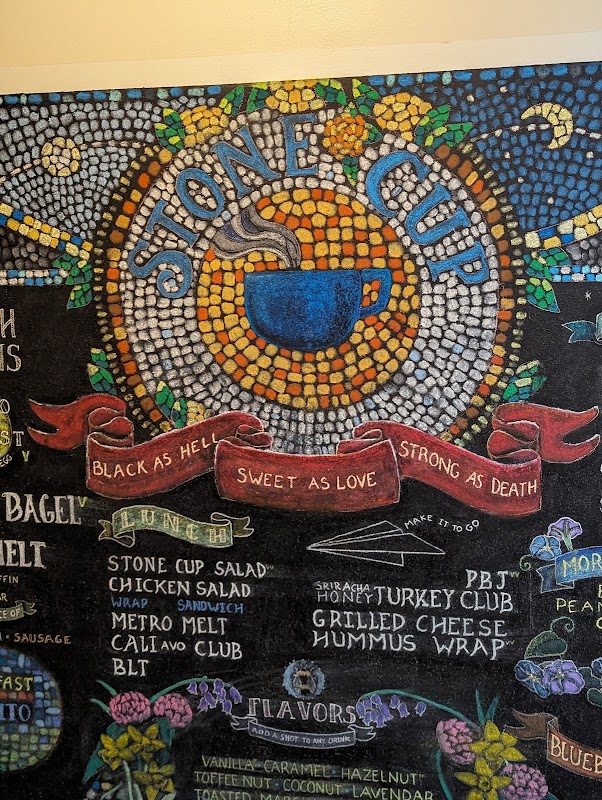 STONE CUP
BLACK AS HELL
SWEET AS LOVE
STRONG AS DEATH
BAGEL V
MELT
SAUSAGE
LUNCH
STONE CUP SALAD
CHICKEN SALAD
WRAP SANDWICH
METRO MELT
CALI AVO CLUB
BLT
MAKE IT TO GO
PBJ
SRIRACHA HONEY TURKEY CLUB
GRILLED CHEESE
HUMMUS WRAP
FLAVORS
ADD A SHOT TO ANY DRINK
VANILLA · CARAMEL · HAZELNUT
TOFFEE NUT · COCONUT · LAVENDAR
TOASTED